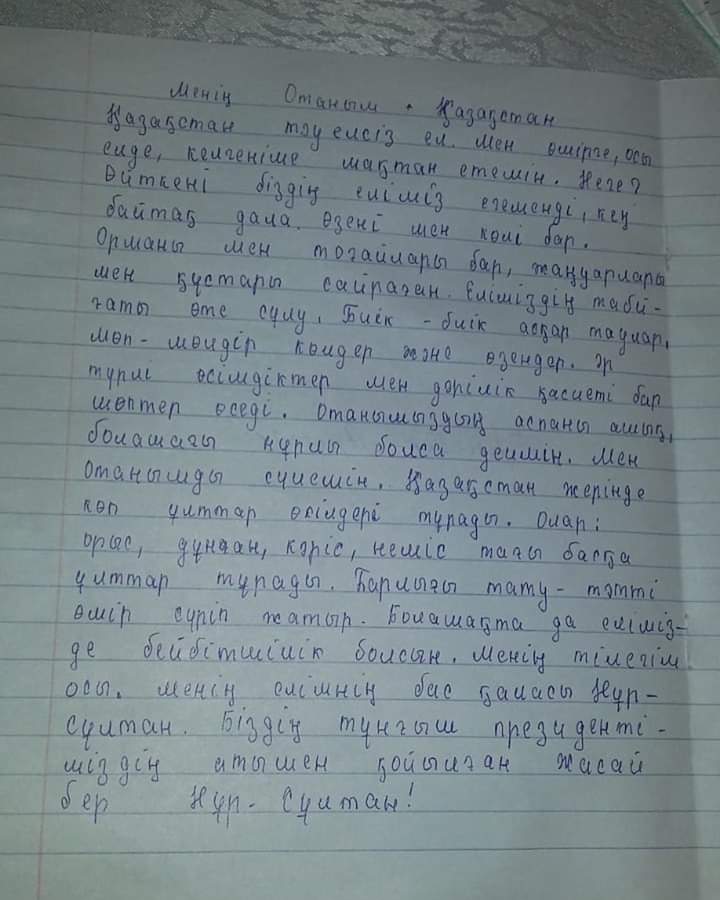 Менің Отаным - Қазақстан
Қазақстан тәуелсіз ел. Мен өмірге, осы
елде, келгеніме мақтан етемін. Неге?
Өйткені біздің еліміз егеменді, кең
байтақ дала. Өзені мен көлі бар.
Орманы мен тоғайлары бар, жануарлары
мен құстары сайраған. Еліміздің таби-
ғаты өте сұлу. Биік - биік асқар таулар,
мөп - мөлдір көлдер және өзендер. Әр
түрлі өсімдіктер мен дәрілік қасиеті бар
шөптер өседі. Отанымыздың аспаны ашық,
болашағы нұрлы болса деймін. Мен
Отанымды сүйемін. Қазақстан жерінде
көп ұлттар өкілдері тұрады. Олар:
орыс, дұнған, кәріс, неміс тағы басқа
ұлттар тұрады. Барлығы тату - тәтті
өмір сүріп жатыр. Болашақта да еліміз-
де бейбітшілік болсын. Менің тілегім
осы. Менің елімнің бас қаласы Нұр-
Сұлтан. Біздің тұнғыш президенті-
міздің атымен қойылған жасай
бер Нұр - Сұлтан!